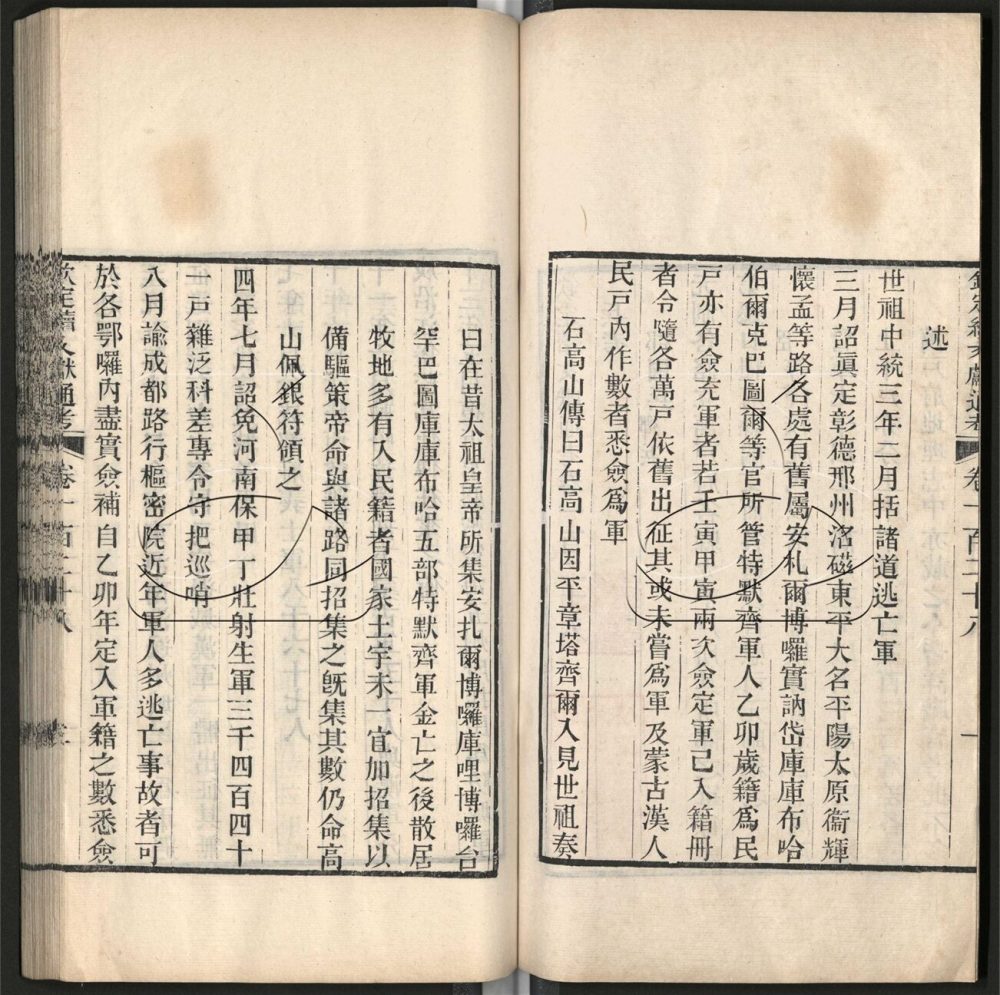 欽定續文獻通考 卷一百二十八
述
世祖中統三年二月括諸道逃亡軍
三月詔眞定彰德邢州洺磁東平大名平陽太原衞輝
懷孟等路各處有舊屬安札爾博囉實訥岱庫庫布哈
伯爾克巴圖爾等官所管特默齊軍人乙卯歲籍爲民
戸亦有僉充軍者若壬寅甲寅兩次僉定軍已入籍冊
者令隨各萬戸依舊出征其或未嘗爲軍及蒙古漢人
民戸內作數者悉僉爲軍
石高山傳曰石高山因平章塔齊爾入見世祖奏
曰在昔太祖皇帝所集安扎爾博囉庫哩博囉台
罕巴圖庫庫布哈五部特默齊軍金亡之後散居
牧地多有入民籍者國家土宇未一宜加招集以
備驅策帝命與諸路同招集之旣集其數仍命高
山佩銀符領之
四年七月詔免河南保甲丁壯射生軍三千四百四十
一戸雜泛科差專令守把巡哨
八月諭成都路行樞密院近年軍人多逃亡事故者可
於各鄂囉內盡實僉補自乙卯年定入軍籍之數悉僉
欽定續文獻通考 卷一百二十八